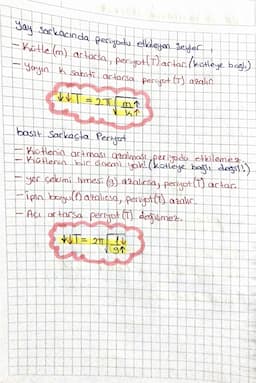 Yay Sarkacında periyodu etkileyen şeyler;
- Kütle (m) artarsa, periyot (T) artar. (kütleye bağlı)
- Yayın k sabiti artarsa periyot (T) azalır.
↓↓T = 2π √m↑/k↑
basit sarkaçta Periyot
- Kütlenin artması azalması, periyodu etkilemez.
- Kütlenin bir önemi yok! (kütleye bağlı değil!)
- yer çekimi ivmesi (g) azalırsa, periyot (T) artar.
- ipin boyu (l) azalırsa, periyot (T) azalır.
- Açı artarsa periyot (T) değişmez.
↓↓T = 2π √l↓/g↑